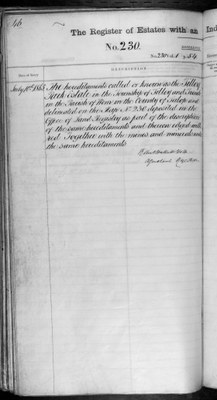 66
The Register of Estates with an Ind
No. 230.
DESCRIPTION
July 11th 1863 The hereditaments called or known as the Tilley
Park Estate in the Township of Tilley and
in the Parish of Wem in the County of Salop and
delineated on the Map No. 230 deposited in the
Office of Land Registry as part of the description
of the same hereditaments and thereon edged with
red Together with the mines and minerals under
the same hereditaments